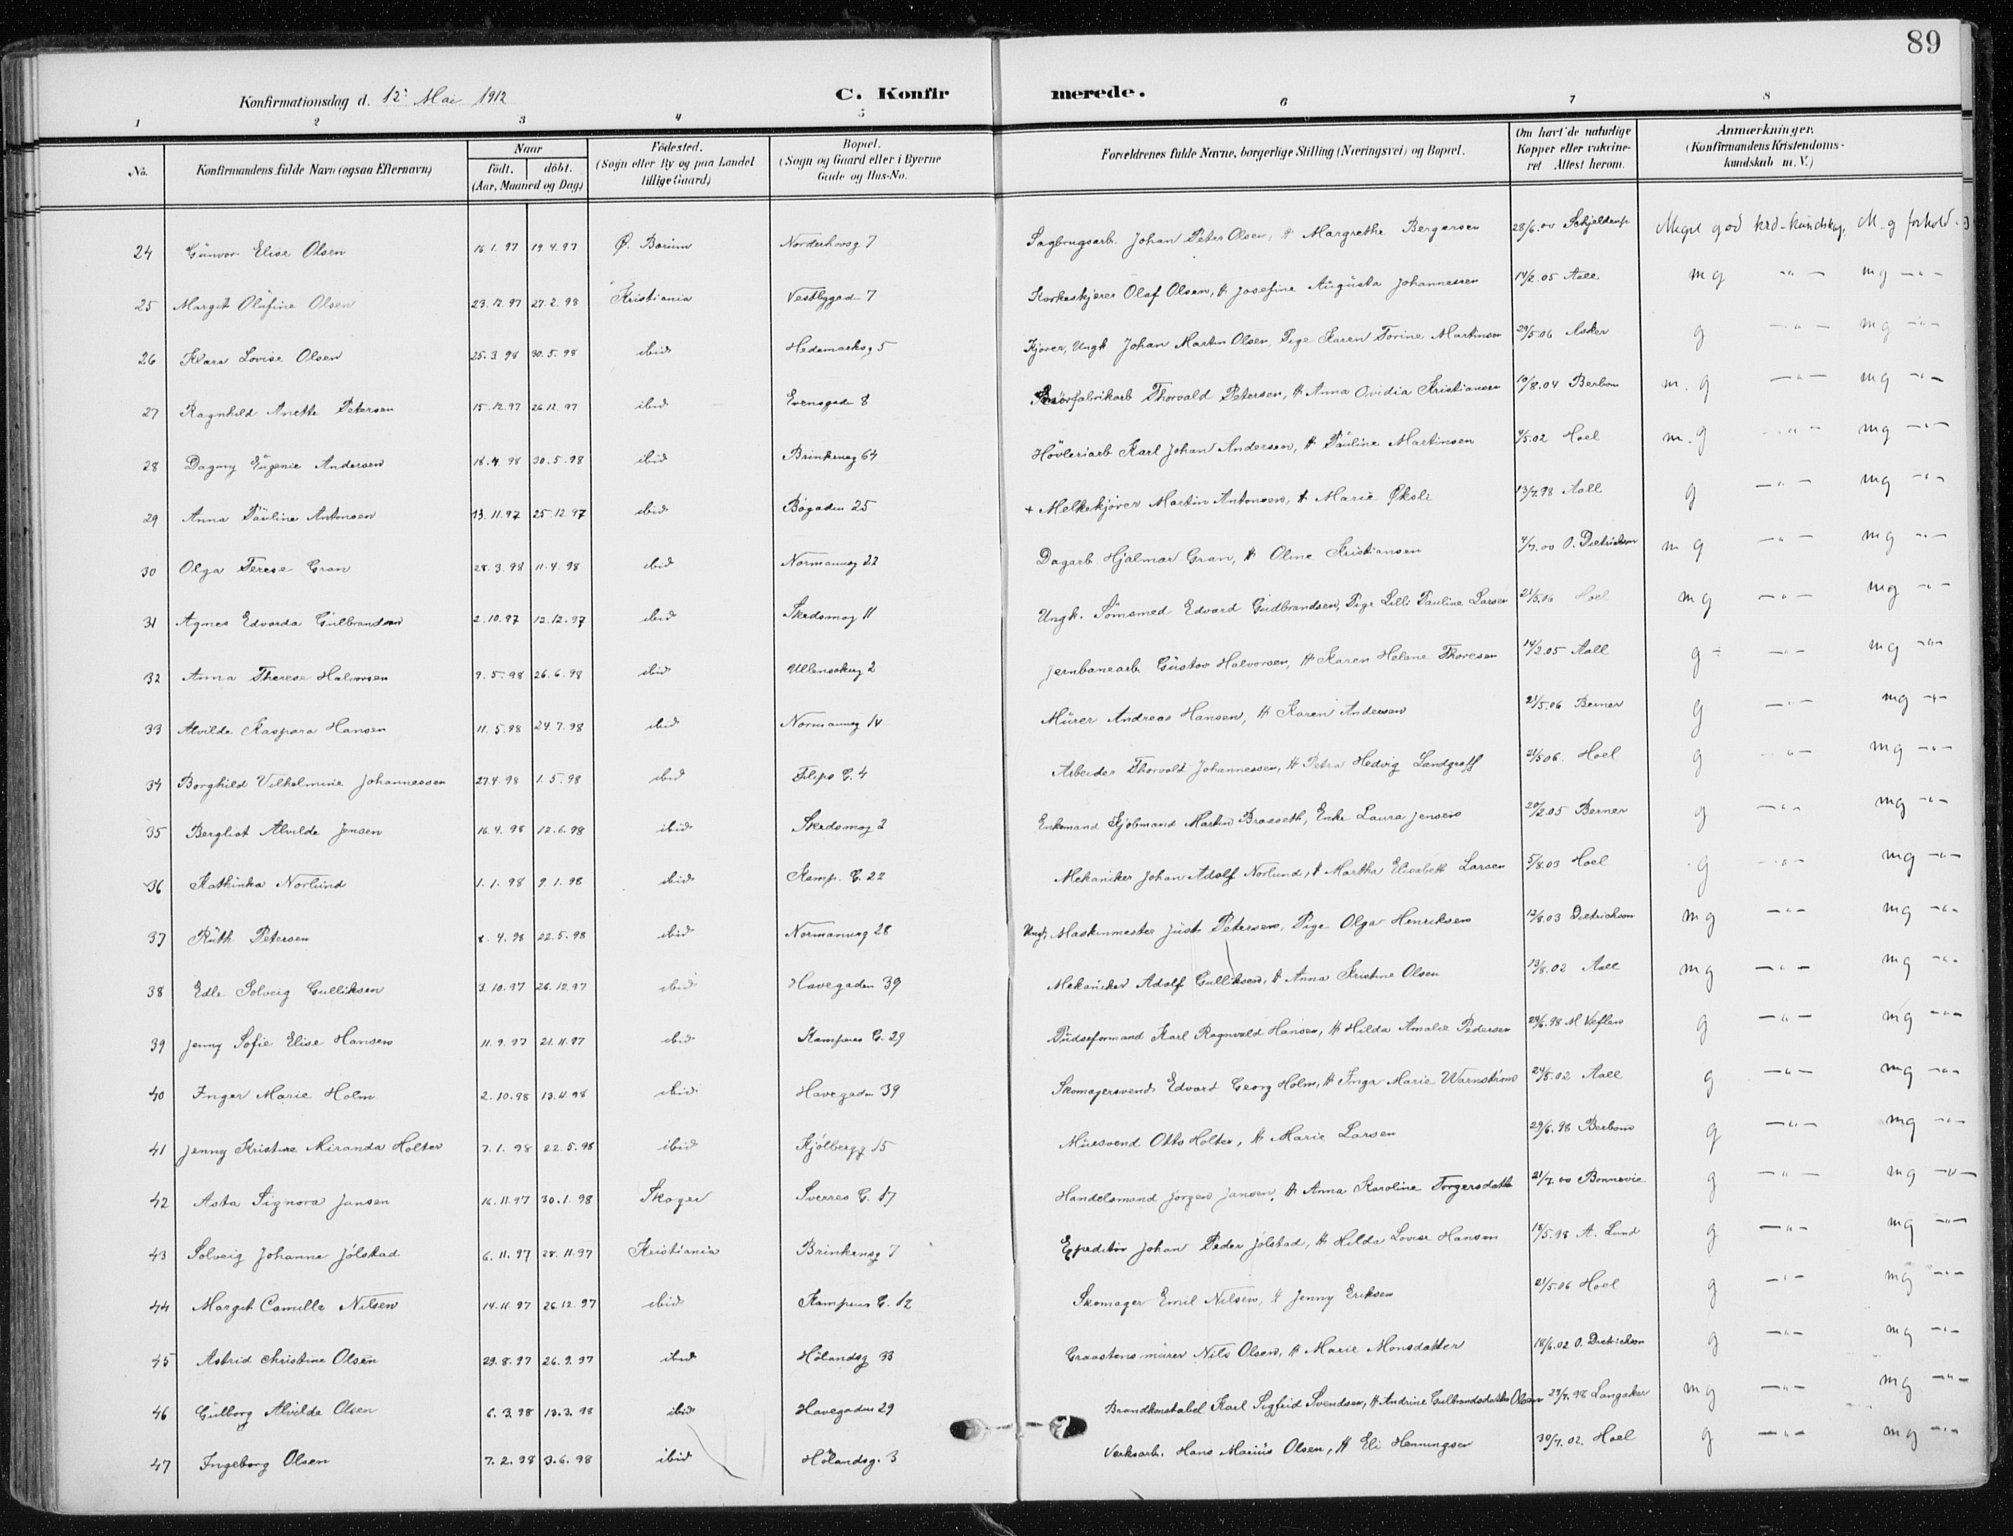 89
Konfirmationsdag d. 12' Mai 1912 C. Konfirmerede.
1 2 3 4 5 6 7 8
No. Konfirmandens fulde Navn (ogsaa Efternavn) Naar født. døbt. (Aar, Maaned og Dag) Fødested. (Sogn eller By og paa Landet tillige Gaard) Bopæl. (Sogn og Gaard eller i Byerne Gade og Hus-No. Forældrenes fulde Navne, borgerlige Stilling (Næringsvei) og Bopæl. Om havt de naturlige Kopper eller vaccineret Attest herom. Anmærkninger. (Konfirmandens Kristendomskundskab m. V.)
24 Gunvor Elise Olsen 16.1.97 19.4.97 Ø. Borum Norderhovsg 7 Sagbrugsarb. Johan Peter Olsen, H Margrethe Bergersen 28/6.00 Schjelderup Meget god krd-kundskap, M. g forhold
25 Margit Olufine Olsen 23.12.97 27.2.98 Kristiania Vestbygad 7 Korkeskjærer Olaf Olsen, H Josefine Augusta Johannessen 14/2.05 Aall mg -"- mg -"-
26 Klara Lovise Olsen 25.3.98 30.5.98 ibid Hedemarksg 5 Kjører, Ungk Johan Martin Olsen, Pige Karen Torine Martinsen 29/5.06 Asker g -"- mg -"-
27 Ragnhild Anette Petersen 15.12.97 26.12.97 ibid Evensgade 8 Thorvald Petersen, H Anna Ovidia Kristiansen 10/8.04 Berbom m. g -"- mg -"-
28 Dagny Eugenie Andersen 18.4.98 30.5.98 ibid Brinkensg 64 Høvleriarb Karl Johan Andersen, H Pauline Martinsen 4/5.02 Hoel m. g -"- mg -"-
29 Anna Pauline Antonsen 13.11.97 25.12.97 ibid Bøgaden 25 + Melkekjører Martin Antonsen, H Marie Øksli 13/7.98 Aall g -"- mg -"-
30 Olga Terese Gran 28.3.98 11.4.98 ibid Normannsg 22 Dagarb Hjalmar Gran, H Oline Kristiansen 4/7.00 O. Dietrichson m g -"- mg -"-
31 Agnes Edvarda Gulbrandsen 2.10.97 12.12.97 ibid Skedsmog 11 Ungk. Sömsmed Edvard Gudbrandsen, Pige Lilli Pauline Larsen 21/5.06 Hoel mg -"- mg -"-
32 Anna Therese Halvorsen 9.5.98 26.6.98 ibid Ullensakerg 2 Jernbanearb Gustav Halvorsen, H Karen Helene Thoresen 14/2.05 Aall g ÷ -"- mg -"-
33 Alvilda Kaspara Hansen 11.5.98 24.7.98 ibid Normannsg 14 Murer Andreas Hansen, H Karen Andersen 21/5.06 Berner g -"- mg -"-
34 Borghild Vilhelmine Johannessen 27.4.98 1.5.98 ibid Filips G. 4 Arbeider Thorvald Johannessen, H Petra Hedvig Landgraff 21/5 06. Hoel g -"- mg -"-
35 Bergliot Alvilde Jensen 16.4.98 12.6.98 ibid Skedsmog 2 Enkemand Kjøbmand Martin Braaseth, Enke Laura Jensen 20/2.05 Berner g -"- mg -"-
36 Kathinka Norlund 1.1.98 9.1.98 ibid Kamp. G. 22 Mekaniker Johan Adolf Norlund, H Martha Elisabeth Larsen 5/8.03 Hoel g -"- mg -"-
37 Ruth Petersen 8.4.98 22.5.98 ibid Normannsg 28 Ungk, Maskinmester Just Petersen, Pige Olga Henriksen 12/8.03 Dietrichson mg -"- mg -"-
38 Edle Solveig Gulliksen 3.10.97 26.12.97 ibid Havegaden 39 Mekaniker Adolf Gulliksen, H Anna Kristine Olsen 13/8.02 Aall mg -"- mg -"-
39 Jenny Sofie Elise Hansen 11.9.97 21.11.97 ibid Kampens G. 29 Pudseformand Karl Ragnvald Hansen, H Hilda Amalie Pedersen 29/6.98 g -"- mg -"-
40 Inger Marie Holm 2.10.98 13.11.98 ibid Havegaden 39 Skomagersvend Edvard Georg Holm, H Inga Marie Warnström 24/5.02 Aall g -"- mg -"-
41 Jenny Kristine Miranda Holter 7.1.98 22.5.98 ibid Kjølbergg 15 Mursvend Otto Holter, H Marie Larsen 29/6.98 Berbom g -"- mg -"-
42 Asta Signora Jansen 16.11.97 30.1.98 Skoger Sverres G. 17 Handelsmand Jørgen Jansen, H Anna Karoline Torgersdatte 21/7.00 Bonnevie g -"- mg -"-
43 Solveig Johanne Jølstad 6.11.97 28.11.97 Kristiania Brinkensg 7 Expeditör Johan Peder Jølstad, H Hilda Lovise Hansen 18/5.98 A. Lund g -"- mg -"-
44 Margit Camilla Nilsen 14.11.97 26.12.97 ibid Kampens G. 12 Skomager Emil Nilsen, H Jenny Eriksen 21/5.06 Hoel g -"- mg -"-
45 Astrid Christine Olsen 29.8.97 26.9.97 ibid Hølandsg 33 Graastensmurer Nils Olsen, H Marie Monsdatter 18/6.02 O. Dietrichson g -"- mg -"-
46 Gulborg Alvilde Olsen 6.3.98 13.3.98 ibid Havegaden 29 Brandkonstabel Karl Sigfrid Svendsen, H Andrine Gulbrandsdatter Olsen 29/7.98 Langaker mg -"- mg -"-
47 Ingeborg Olsen 7.2.98 3.6.98 ibid Hølandsg. 3 Verksarb. Hans Marius Olsen, H Eli Henningsen 30/7.02. Hoel g -"- mg -"-